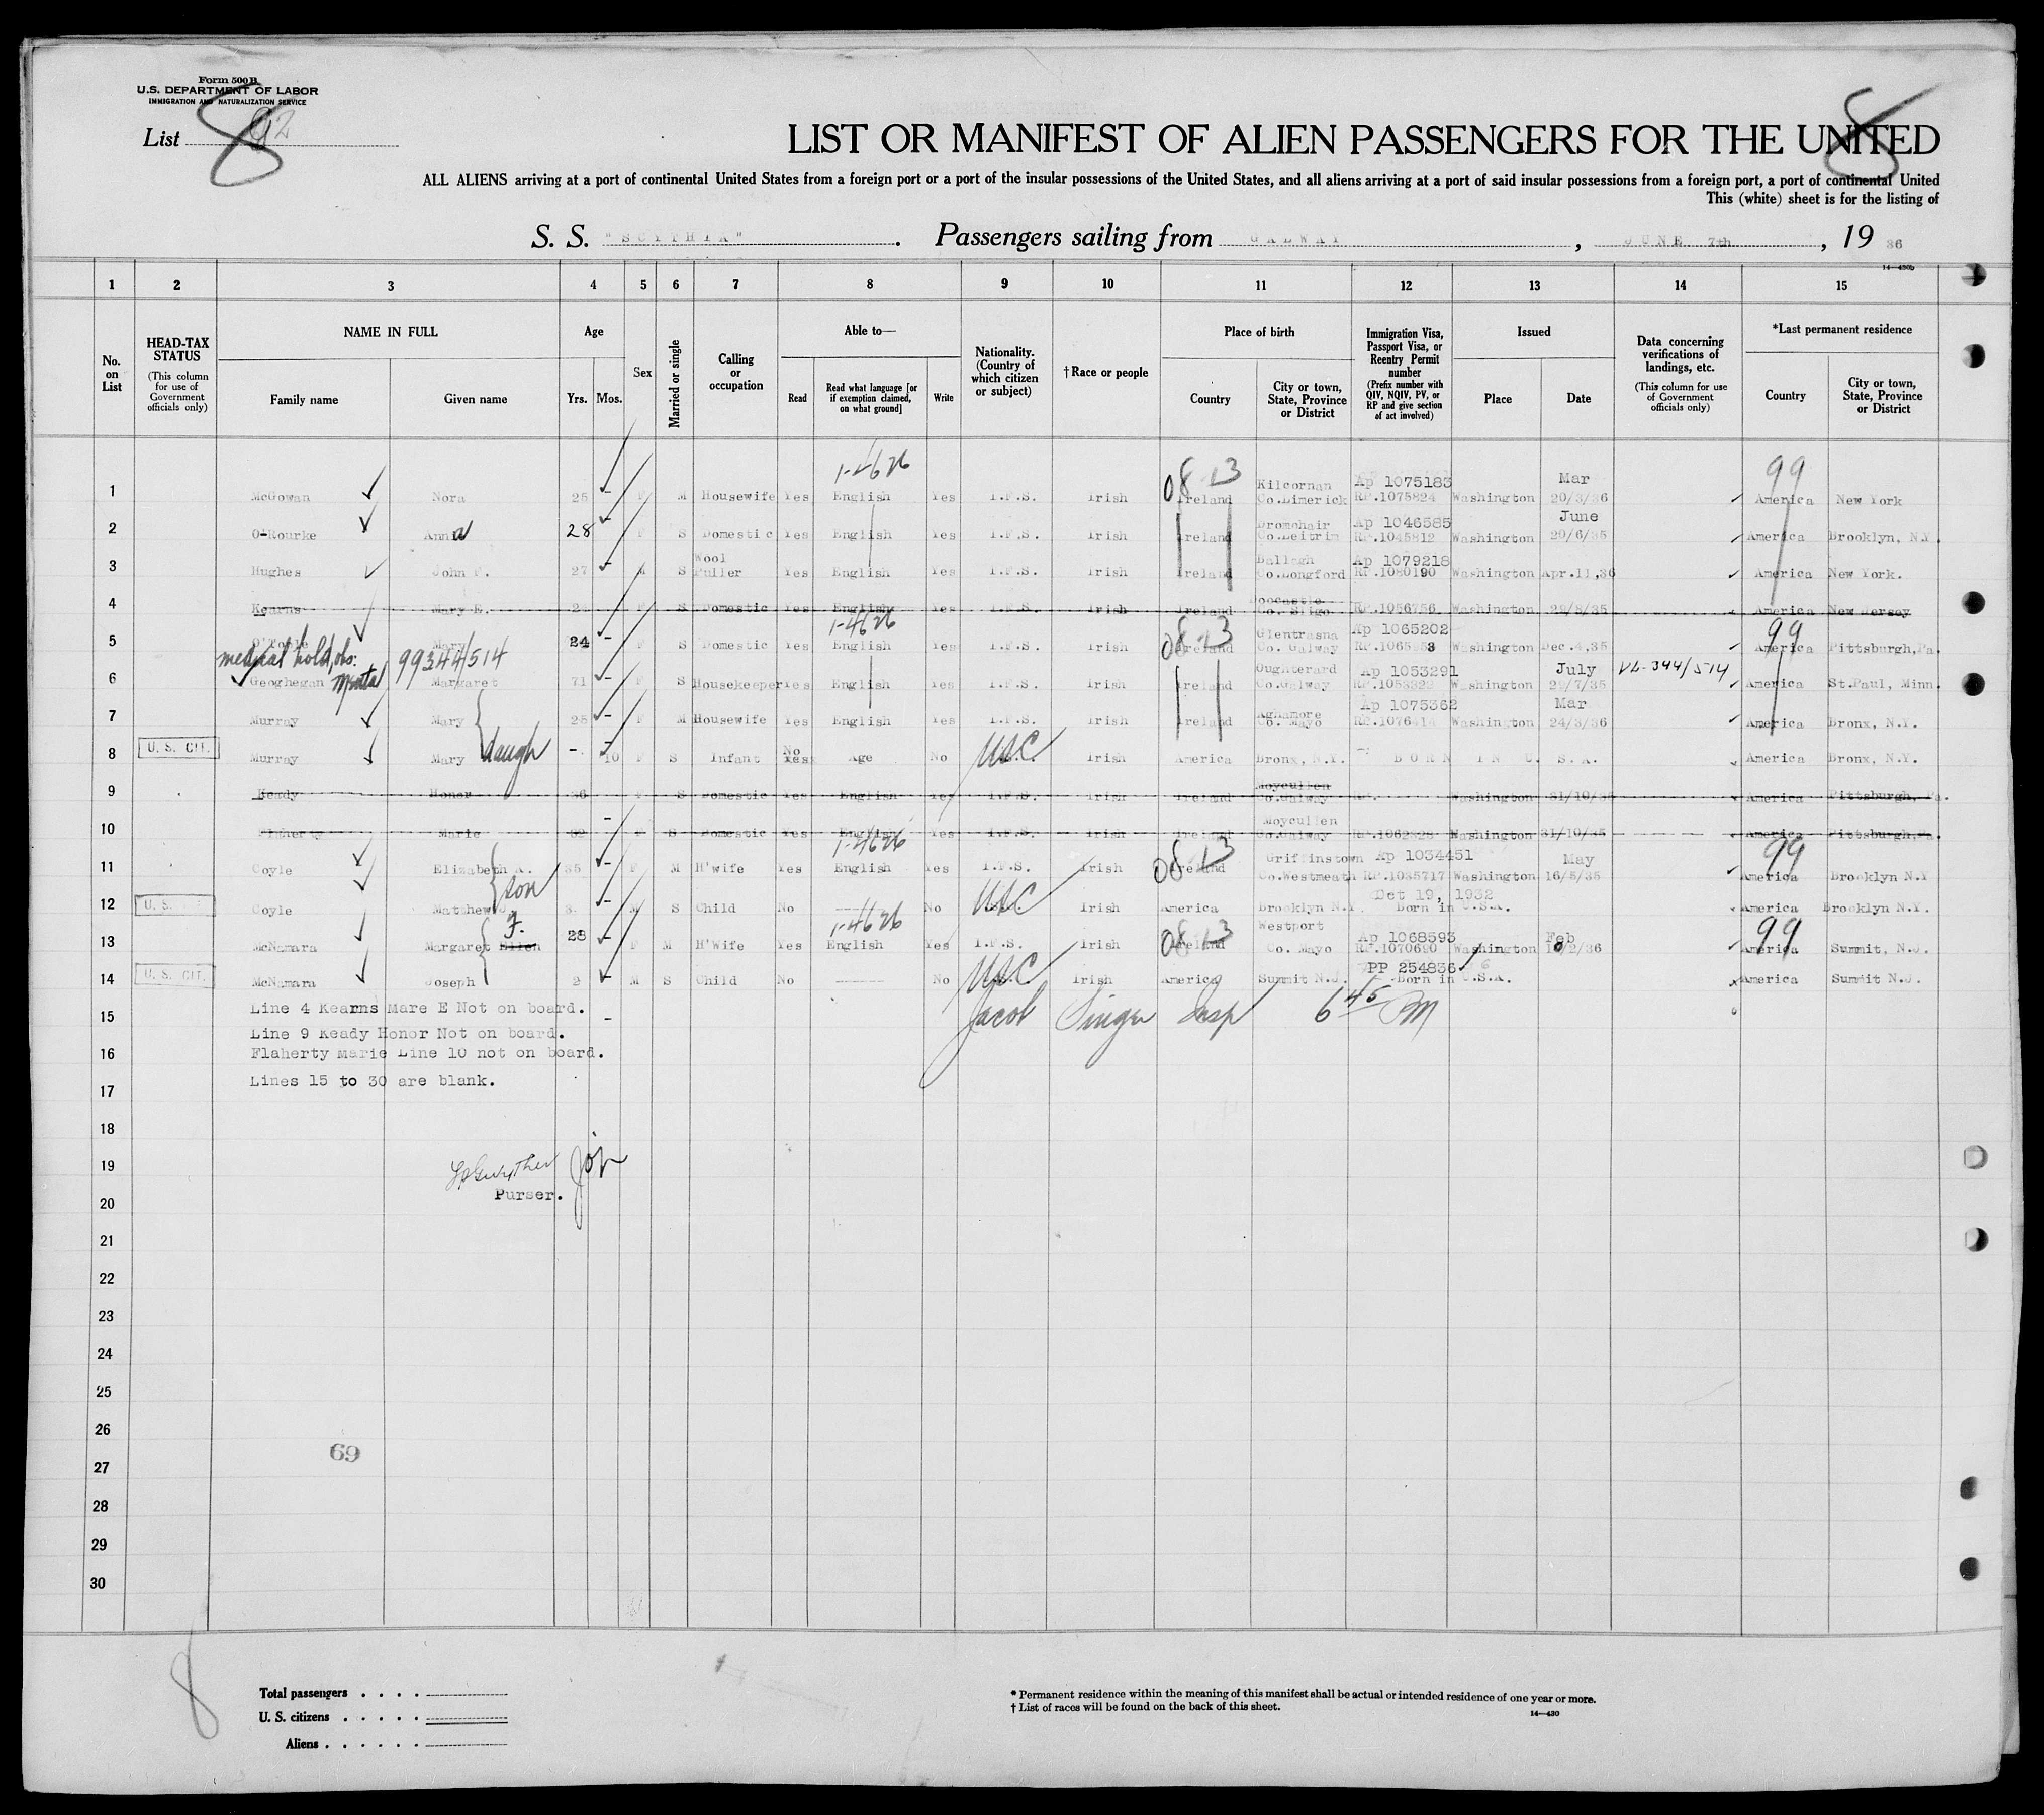 Form 500 B
U.S. DEPARTMENT OF LABOR
IMMIGRATION AND NATURALIZATION SERVICE
List 8 92
8
LIST OR MANIFEST OF ALIEN PASSENGERS FOR THE UNITED
ALL ALIENS arriving at a port of continental United States from a foreign port or a port of the insular possessions of the United States, and all aliens arriving at a port of said insular possessions from a foreign port, a port of continental United
This (white) sheet is for the listing of
S. S. "SCYTHIA". Passengers sailing from GALWAY, JUNE 7th, 19 36
14—430b
1 2 3 4 5 6 7 8 9 10 11 12 13 14 15
No. on List
HEAD-TAX STATUS (This column for use of Government officials only)
NAME IN FULL Family name Given name
Age Yrs. Mos.
Sex
Married or single
Calling or occupation
Able to— Read Read what language [or if exemption claimed, on what ground] Write
Nationality. (Country of which citizen or subject)
†Race or people
Place of birth Country City or town, State, Province or District
Immigration Visa, Passport Visa, or Reentry Permit number (Prefix number with QIV, NQIV, PV, or RP and give section of act involved)
Issued Place Date
Data concerning verifications of landings, etc. (This column for use of Government officials only)
*Last permanent residence Country City or town, State, Province or District
08-13 Kilcornan Ap 1075183 Mar 99
1 McGowan Nora 25 - F M Housewife Yes English Yes I.F.S. Irish Ireland Co.Limerick RP.1075824 Washington 20/3/36 America New York
Dromohair Ap 1046585 June
2 O'Rourke Anna 28 - F S Domestic Yes English Yes I.F.S. Irish Ireland Co.Leitrim RP.1045812 Washington 20/6/35 America Brooklyn, N.Y.
Wool Ballagh Ap 1079218
3 Hughes John F. 27 - M S Puller Yes English Yes I.F.S. Irish Ireland Co.Longford RP.1080190 Washington Apr.11,36 America New York.
4 Kearns Mary E. F S Domestic Yes English Yes I.F.S. Irish Ireland Co. Sligo RP.1056756 Washington 29/8/35 America New Jersey
1-4626 08-13 Glentrasna Ap 1065202 99
5 O'Toole Mary 24 - F S Domestic Yes English Yes I.F.S. Irish Ireland Co. Galway Washington Dec.4,35 America Pittsburgh,Pa.
medical hold, obs: Mental 99344/514 Oughterard Ap 1053291 July VL-344/514
6 Geoghegan Margaret 71 - F S Housekeeper Yes English Yes I.F.S. Irish Ireland Co.Galway RP.1053322 Washington 29/7/35 America St.Paul, Minn.
Aghamore Ap 1075362 Mar
7 Murray Mary 25 - F M Housewife Yes English Yes I.F.S. Irish Ireland Co. Mayo RP.1076414 Washington 24/3/36 America Bronx, N.Y.
8 U. S. CIT. Murray Mary daugh - 10 F S Infant No Yes Age No USC Irish America Bronx, N.Y. BORN IN U. S. A. America Bronx, N.Y.
Moycullen
9 Keady Honor 36 F S Domestic Yes English Yes I.F.S. Irish Ireland Co.Galway RP. Washington 31/10/35 America Pittsburgh, Pa.
Moycullen
10 Flaherty Marie - F S Domestic Yes English Yes I.F.S. Irish Ireland Co.Galway Washington 31/10/35 America Pittsburgh,Pa.
1-4626 08-13 Griffinstown Ap 1034451 May 99
11 Coyle Elizabeth A. 35 - F M H'wife Yes English Yes I.F.S. Irish Ireland Co.Westmeath RP.1035717 Washington 16/5/35 America Brooklyn N.Y
Oct 19, 1932
12 U. S. Coyle Matthew J. son 3 - M S Child No No USC Irish America Brooklyn N.Y. Born in U.S.A. America Brooklyn N.Y.
1-4626 08-13 Westport Ap 1068593 Feb 99
13 McNamara Margaret Ellen F. 28 - F M H'Wife Yes English Yes I.F.S. Irish Ireland Co. Mayo RP.1070690 Washington America Summit, N.J.
PP 254836
14 U. S. CIT. McNamara Joseph 2 - M S Child No No USC Irish America Summit N.J. Born in U.S.A. America Summit N.J.
Line 4 Kearns Mare E Not on board.
15 - Jacob Singer Insp 6 45 PM
Line 9 Keady Honor Not on board.
16 Flaherty Marie Line 10 not on board.
Lines 15 to 30 are blank.
17
18
19
Purser.
20
21
22
23
24
25
26
69
27
28
29
30
8
Total passengers
U. S. citizens
Aliens
* Permanent residence within the meaning of this manifest shall be actual or intended residence of one year or more.
† List of races will be found on the back of this sheet.
14—430